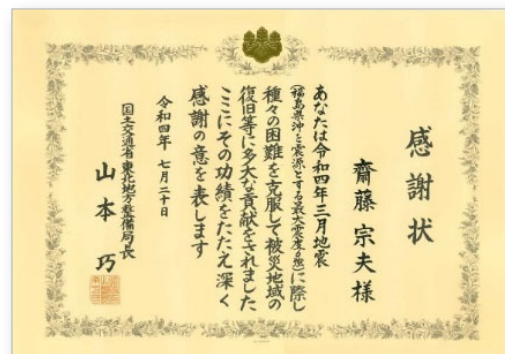 感謝状
齋藤宗夫様
あなたは令和四年三月地震
(福島県沖を震源とする最大震度6強)に際し
種々の困難を克服して被災地域の
復旧等に多大な貢献をされました
ここにその功績をたたえ深く
感謝の意を表します
令和四年 七月二十日
国土交通省東北地方整備局長
山本巧